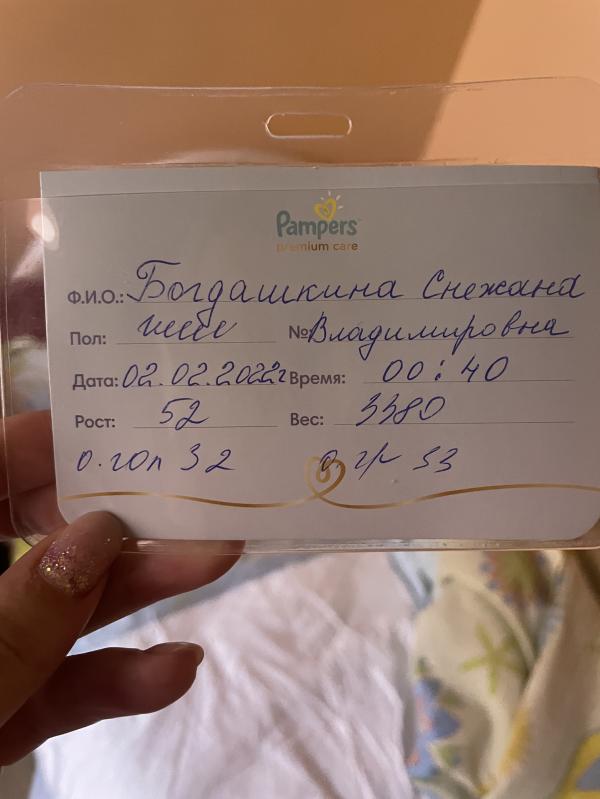 Pampers
premium care
Ф.И.О.: Богдашкина Снежана
Пол: жен №: Владимировна
Дата: 02.02.2022г Время: 00:40
Рост: 52 Вес: 3380
о. гол 32 о. гр 33